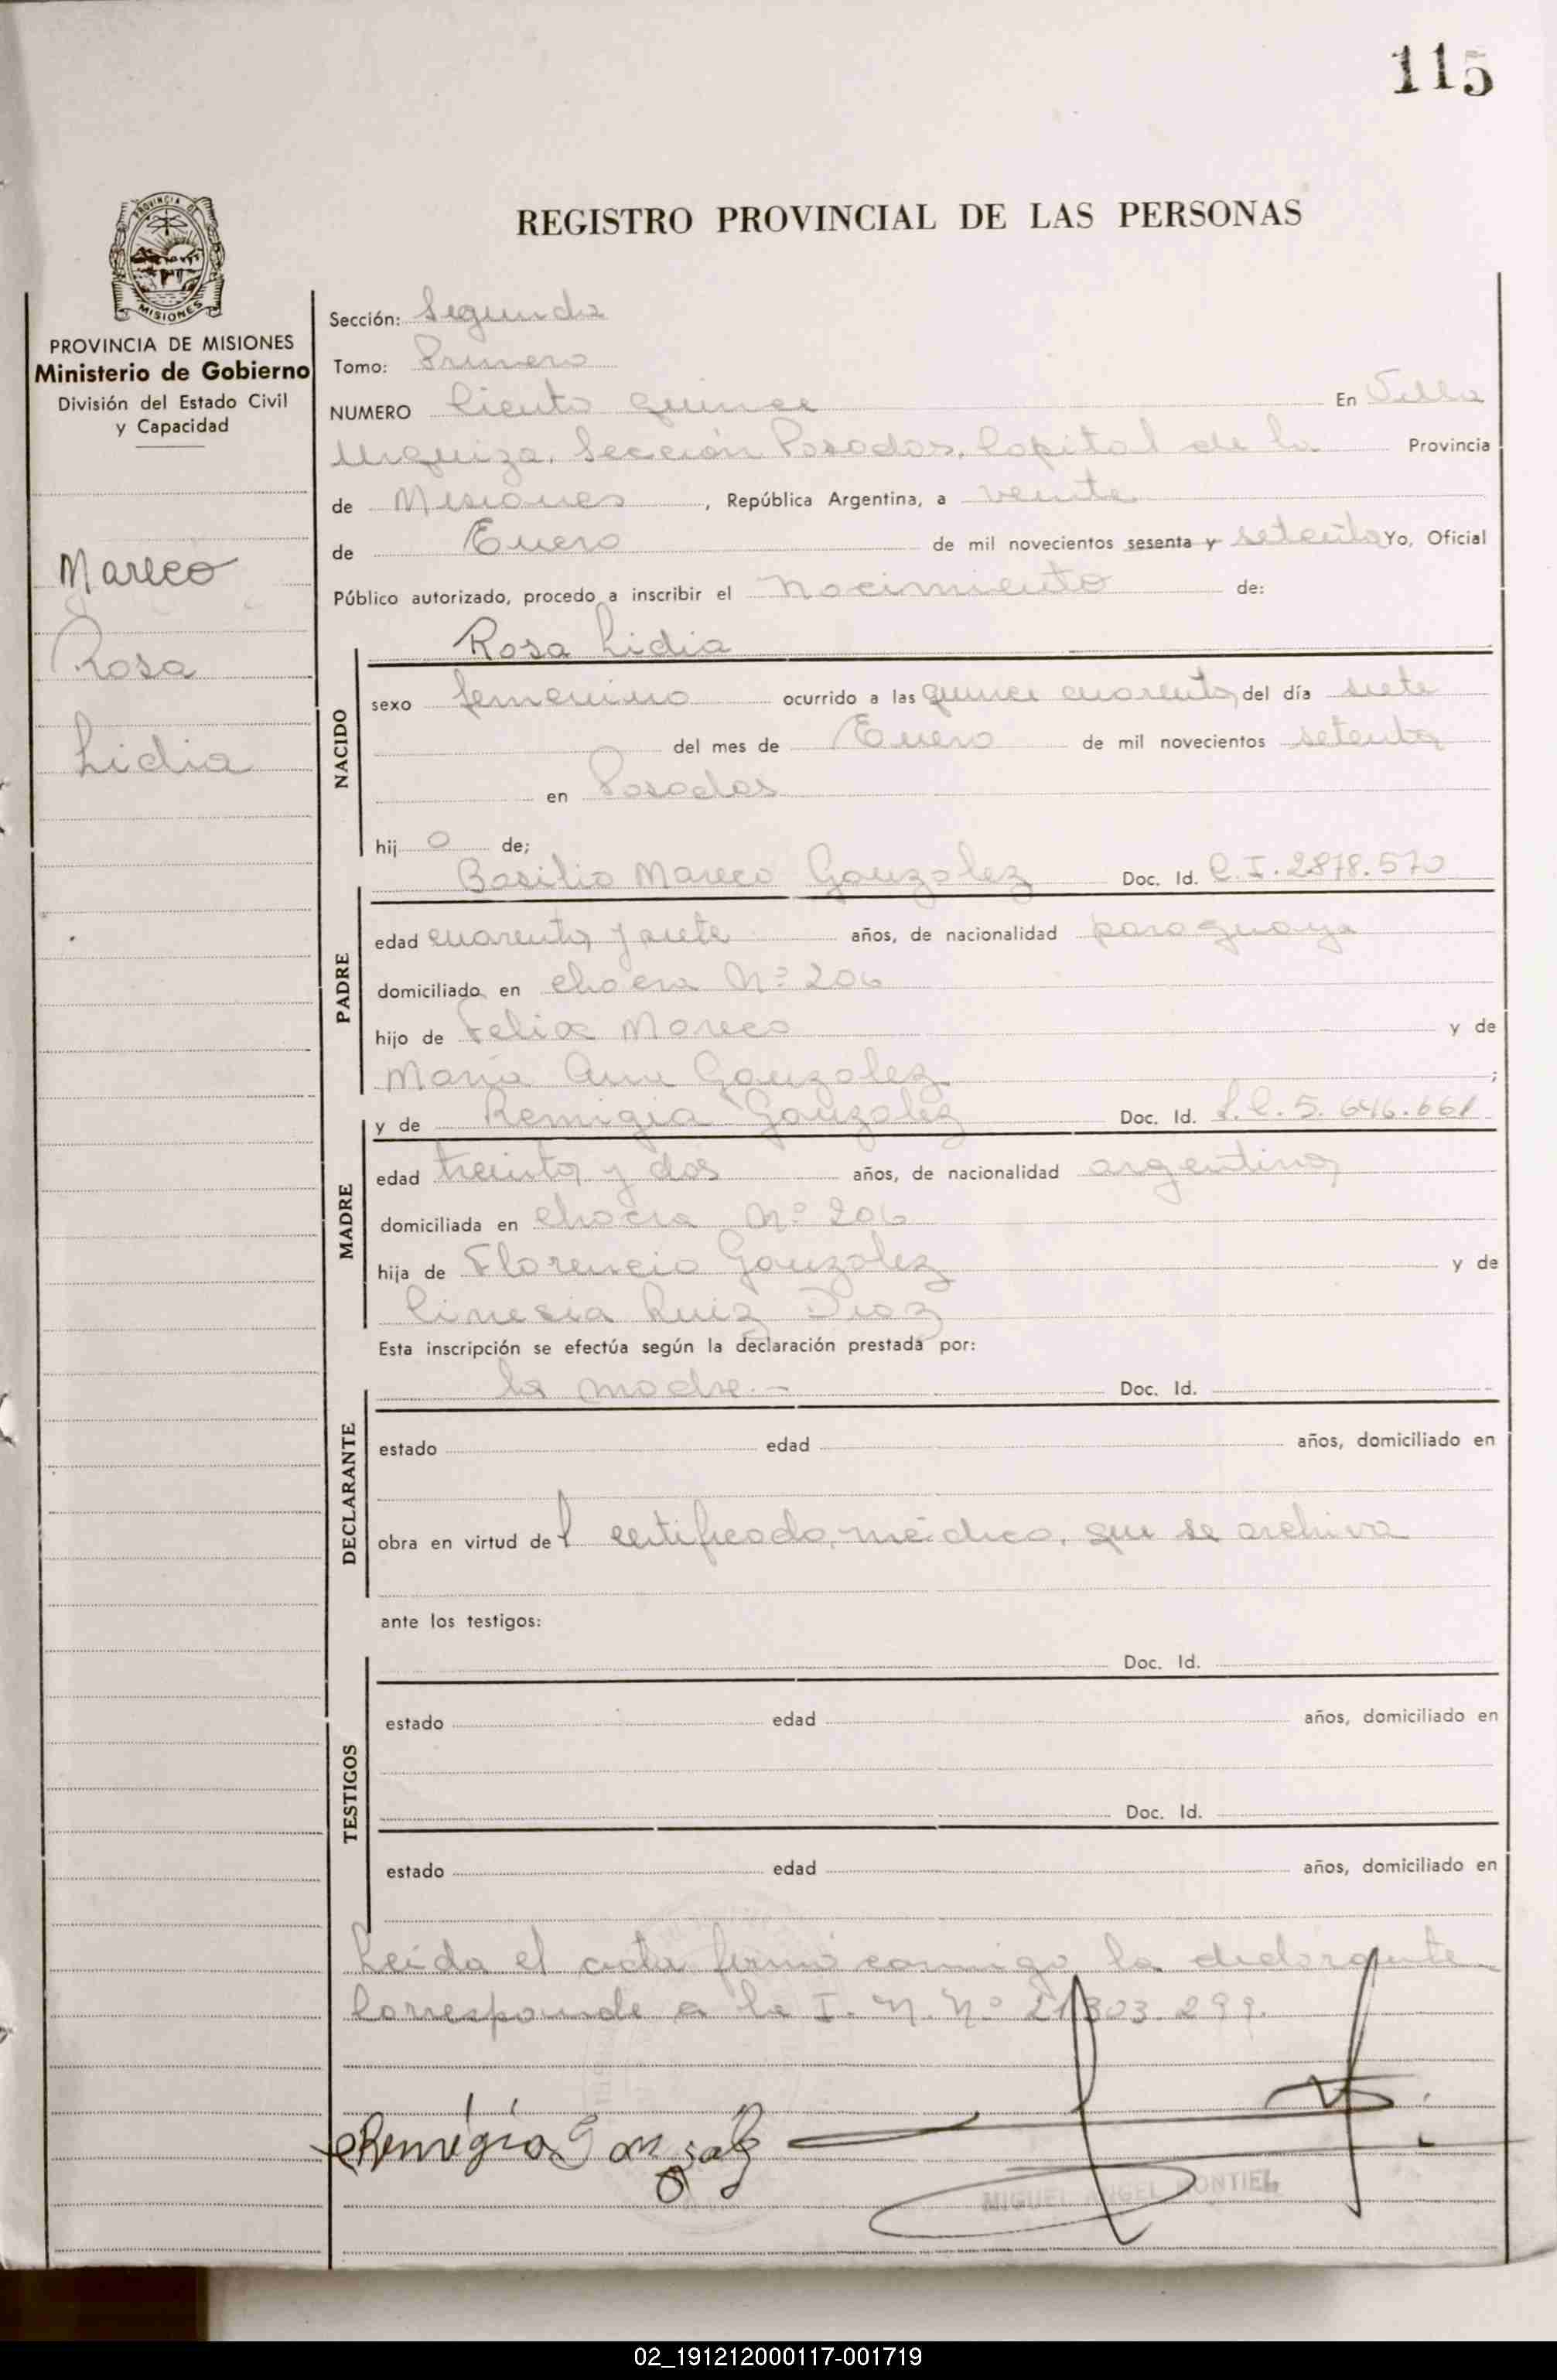 115
PROVINCIA DE
MISIONES
PROVINCIA DE MISIONES
Ministerio de Gobierno
División del Estado Civil
y Capacidad
Mareco
Rosa
Lidia
REGISTRO PROVINCIAL DE LAS PERSONAS
Sección: Segunda
Tomo: Primero
NUMERO Ciento quince En Villa
Urquiza, Sección Posadas, Capital de la Provincia
de Misiones, República Argentina, a veinte
de Enero de mil novecientos sesenta y setenta Yo, Oficial
Público autorizado, procedo a inscribir el nacimiento de:
Rosa Lidia
NACIDO
sexo femenino ocurrido a las quince cuarenta del día siete
del mes de Enero de mil novecientos setenta
en Posadas
hij a de;
Basilio Mareco Gonzalez Doc. Id. C.I. 2878.570
PADRE
edad cuarenta y siete años, de nacionalidad paraguaya
domiciliado en chacra Nº 206
hijo de Felix Mareco y de
Maria Ana Gonzalez ;
y de Remigia Gonzalez Doc. Id. L.C. 5.646.661
MADRE
edad treinta y dos años, de nacionalidad argentina
domiciliada en chacra Nº 206
hija de Florencio Gonzalez y de
Cinesia Ruiz Diaz
Esta inscripción se efectúa según la declaración prestada por:
la madre.- Doc. Id.
DECLARANTE
estado edad años, domiciliado en
obra en virtud del certificado médico, que se archiva
ante los testigos:
Doc. Id.
TESTIGOS
estado edad años, domiciliado en
Doc. Id.
estado edad años, domiciliado en
Leida el acta firmó conmigo la declarante
Corresponde a la I. N. Nº 21.303.299.
Remigia Gonzalez
MIGUEL ANGEL MONTIEL
02_191212000117-001719